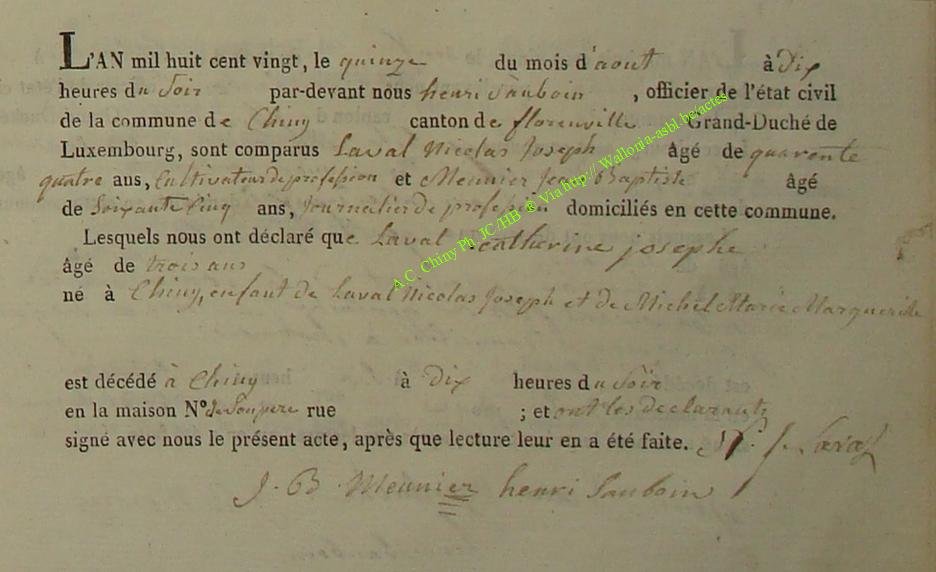 L'AN mil huit cent vingt, le quinze du mois d'aout à dix
heures du Soir par-devant nous henri Sauboin , officier de l'état civil
de la commune de Chiny canton de florenville Grand-Duché de
Luxembourg, sont comparus Laval Nicolas Joseph âgé de quarente
quatre ans, Cultivateur de profession et Meunier Jean Baptiste âgé
de Soixante Cinq ans, Journalier de profession domiciliés en cette commune.
Lesquels nous ont déclaré que Laval catherine josephe
âgé de trois ans
né à Chiny, enfant de Laval Nicolas Joseph et de Michel Marie Marguerite
est décédé à Chiny à dix heures du Soir
en la maison N° de Son pere rue ; et ont les declarants
signé avec nous le présent acte, après que lecture leur en a été faite. N. J. Laval
J. B. Meunier henri Sauboin
A.C. Chiny Ph. JC /HB © Via http:// Wallonia-asbl.be/actes